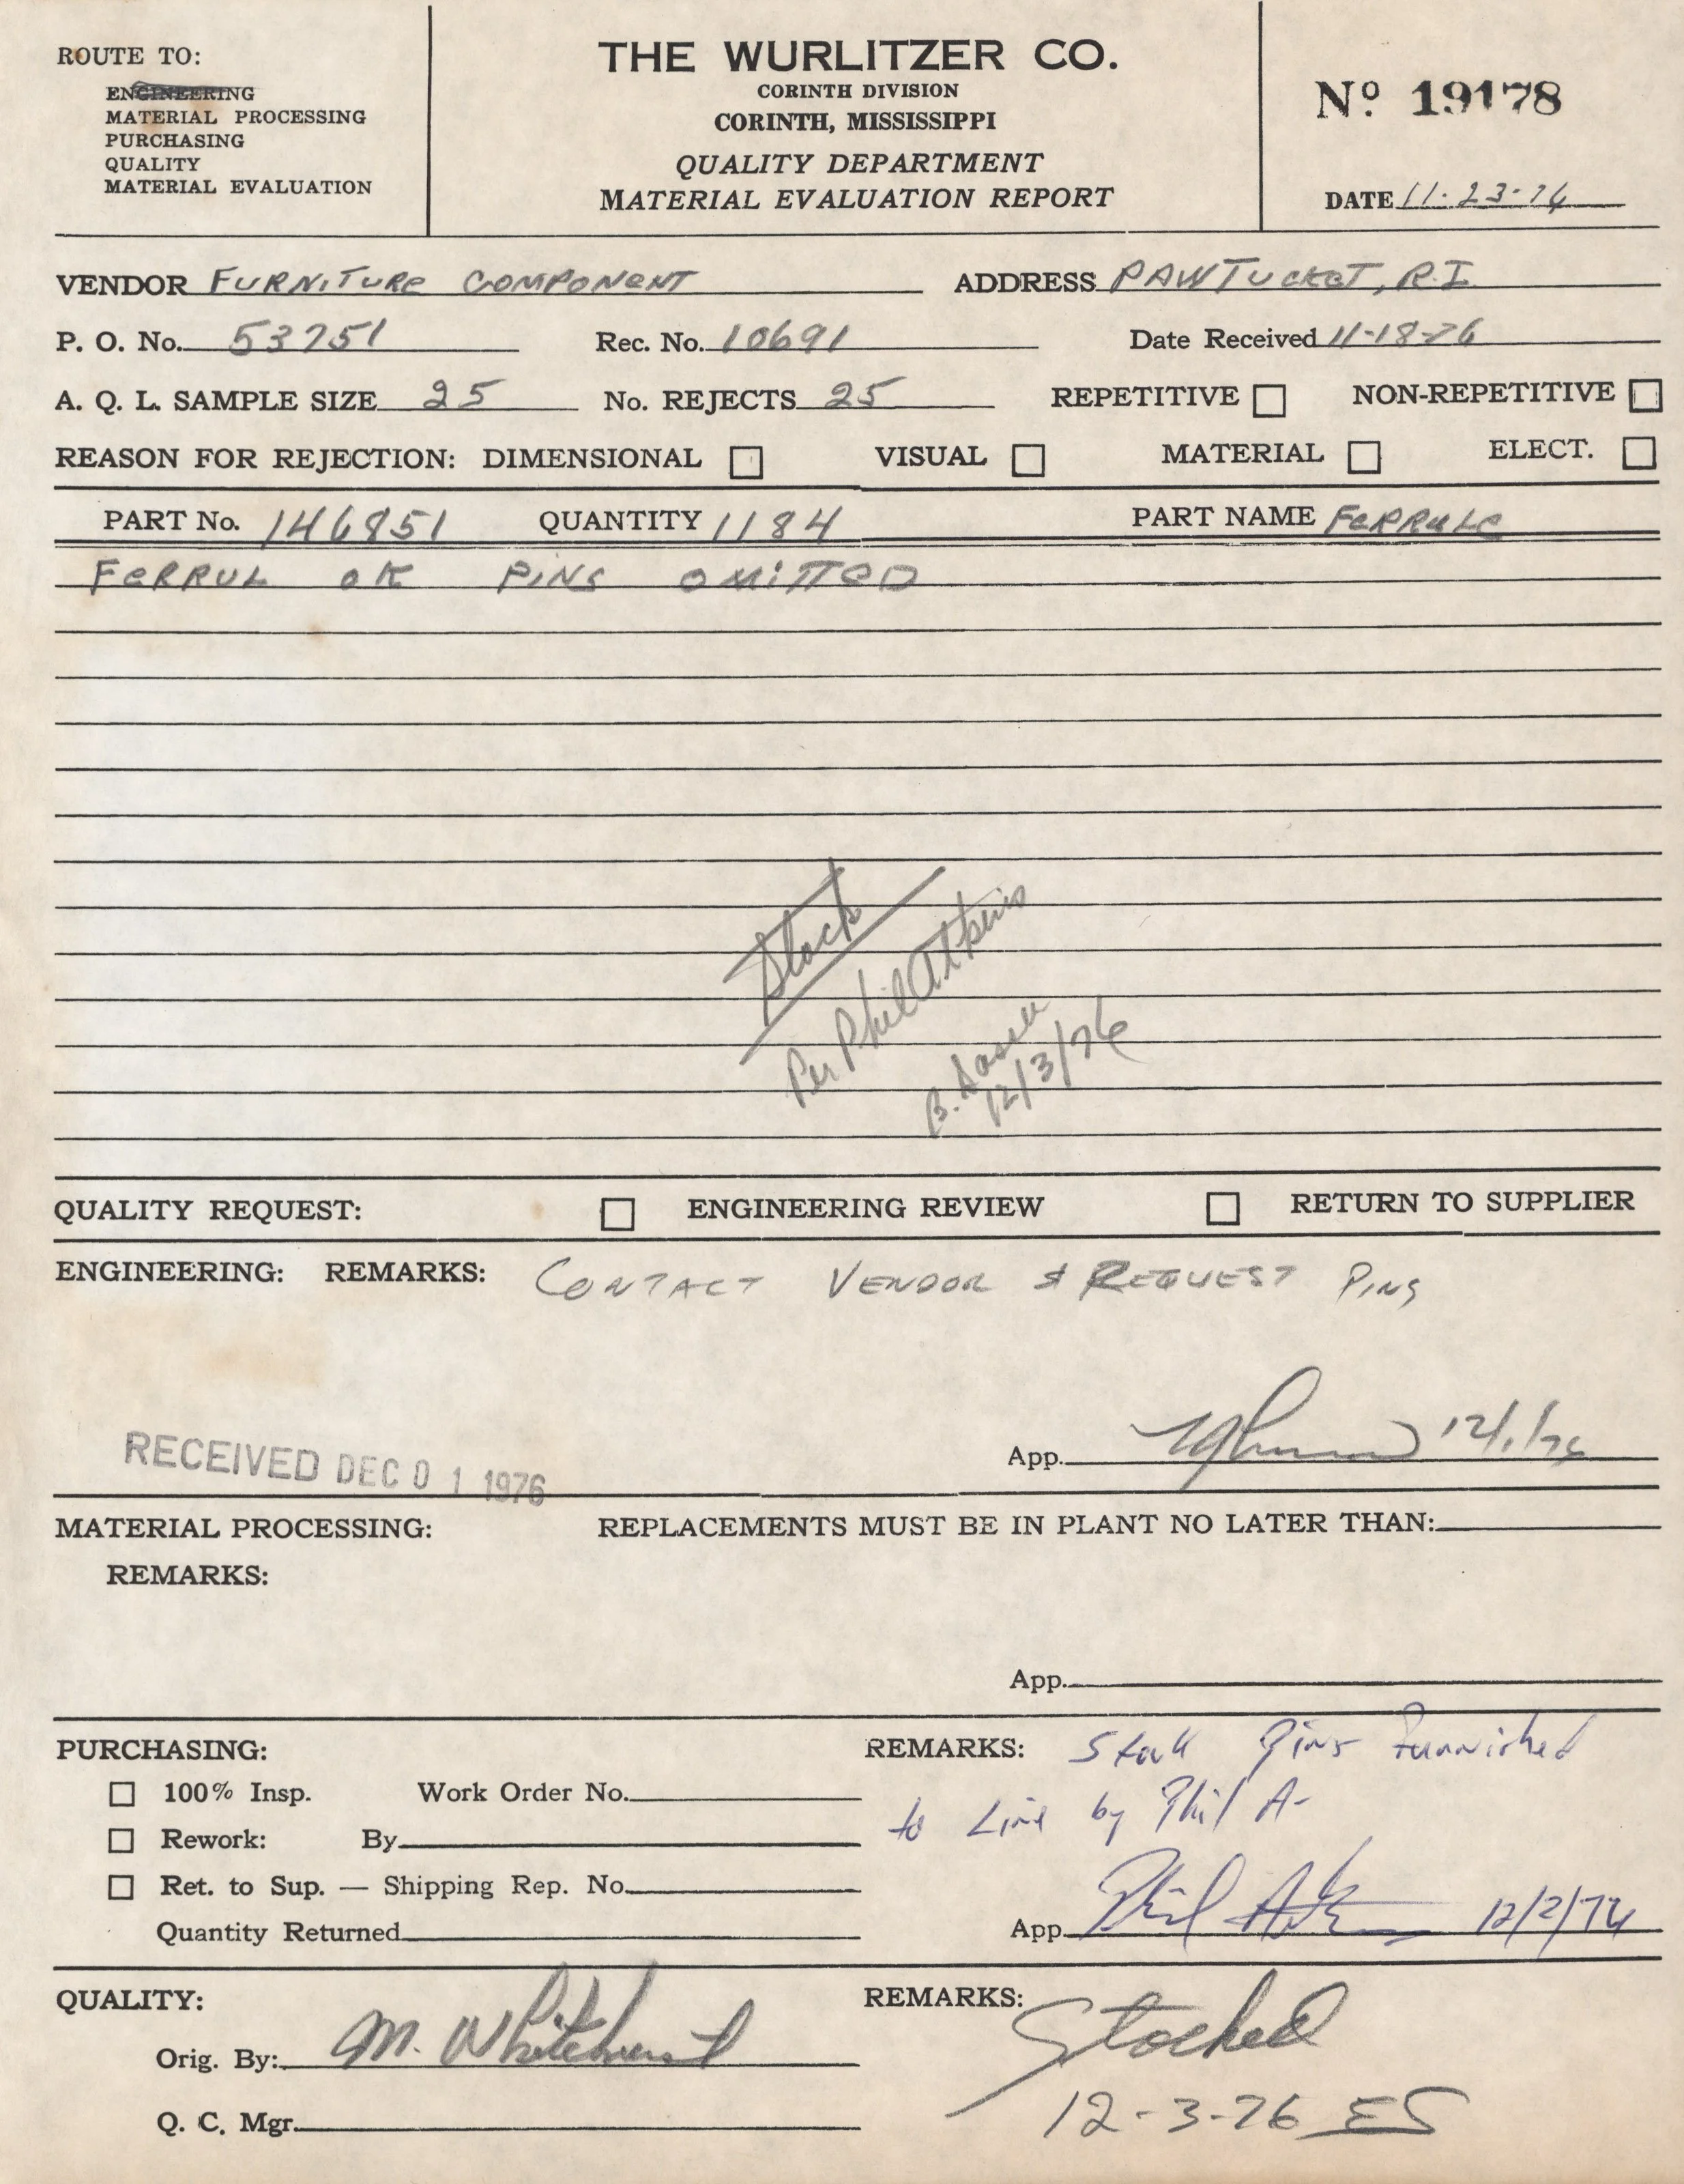 ROUTE TO:
ENGINEERING
MATERIAL PROCESSING
PURCHASING
QUALITY
MATERIAL EVALUATION
THE WURLITZER CO.
CORINTH DIVISION
CORINTH, MISSISSIPPI
QUALITY DEPARTMENT
MATERIAL EVALUATION REPORT
Nº 19178
DATE 11-23-76
VENDOR FURNITURE COMPONENT ADDRESS PAWTUCKET, R.I.
P. O. No. 53751 Rec. No. 10691 Date Received 11-18-76
A. Q. L. SAMPLE SIZE 25 No. REJECTS 25 REPETITIVE ☐ NON-REPETITIVE ☐
REASON FOR REJECTION: DIMENSIONAL ☐ VISUAL ☐ MATERIAL ☐ ELECT. ☐
PART No. 146851 QUANTITY 1184 PART NAME FERRULE
FERRUL OK PINS OMITTED
Stock
Per Phil Atkins
B.
12/3/76
QUALITY REQUEST: ☐ ENGINEERING REVIEW ☐ RETURN TO SUPPLIER
ENGINEERING: REMARKS: CONTACT VENDOR & REQUEST PINS
App. 12/1/76
RECEIVED DEC 01 1976
MATERIAL PROCESSING: REPLACEMENTS MUST BE IN PLANT NO LATER THAN:
REMARKS:
App.
PURCHASING: REMARKS: Stock Pins Furnished
☐ 100% Insp. Work Order No. to Line by Phil A-
☐ Rework: By
☐ Ret. to Sup. — Shipping Rep. No.
Quantity Returned App. Phil Atkins 12/2/76
QUALITY: REMARKS: Stocked
Orig. By: M. Whitehurst
Q. C. Mgr. 12-3-76 ES